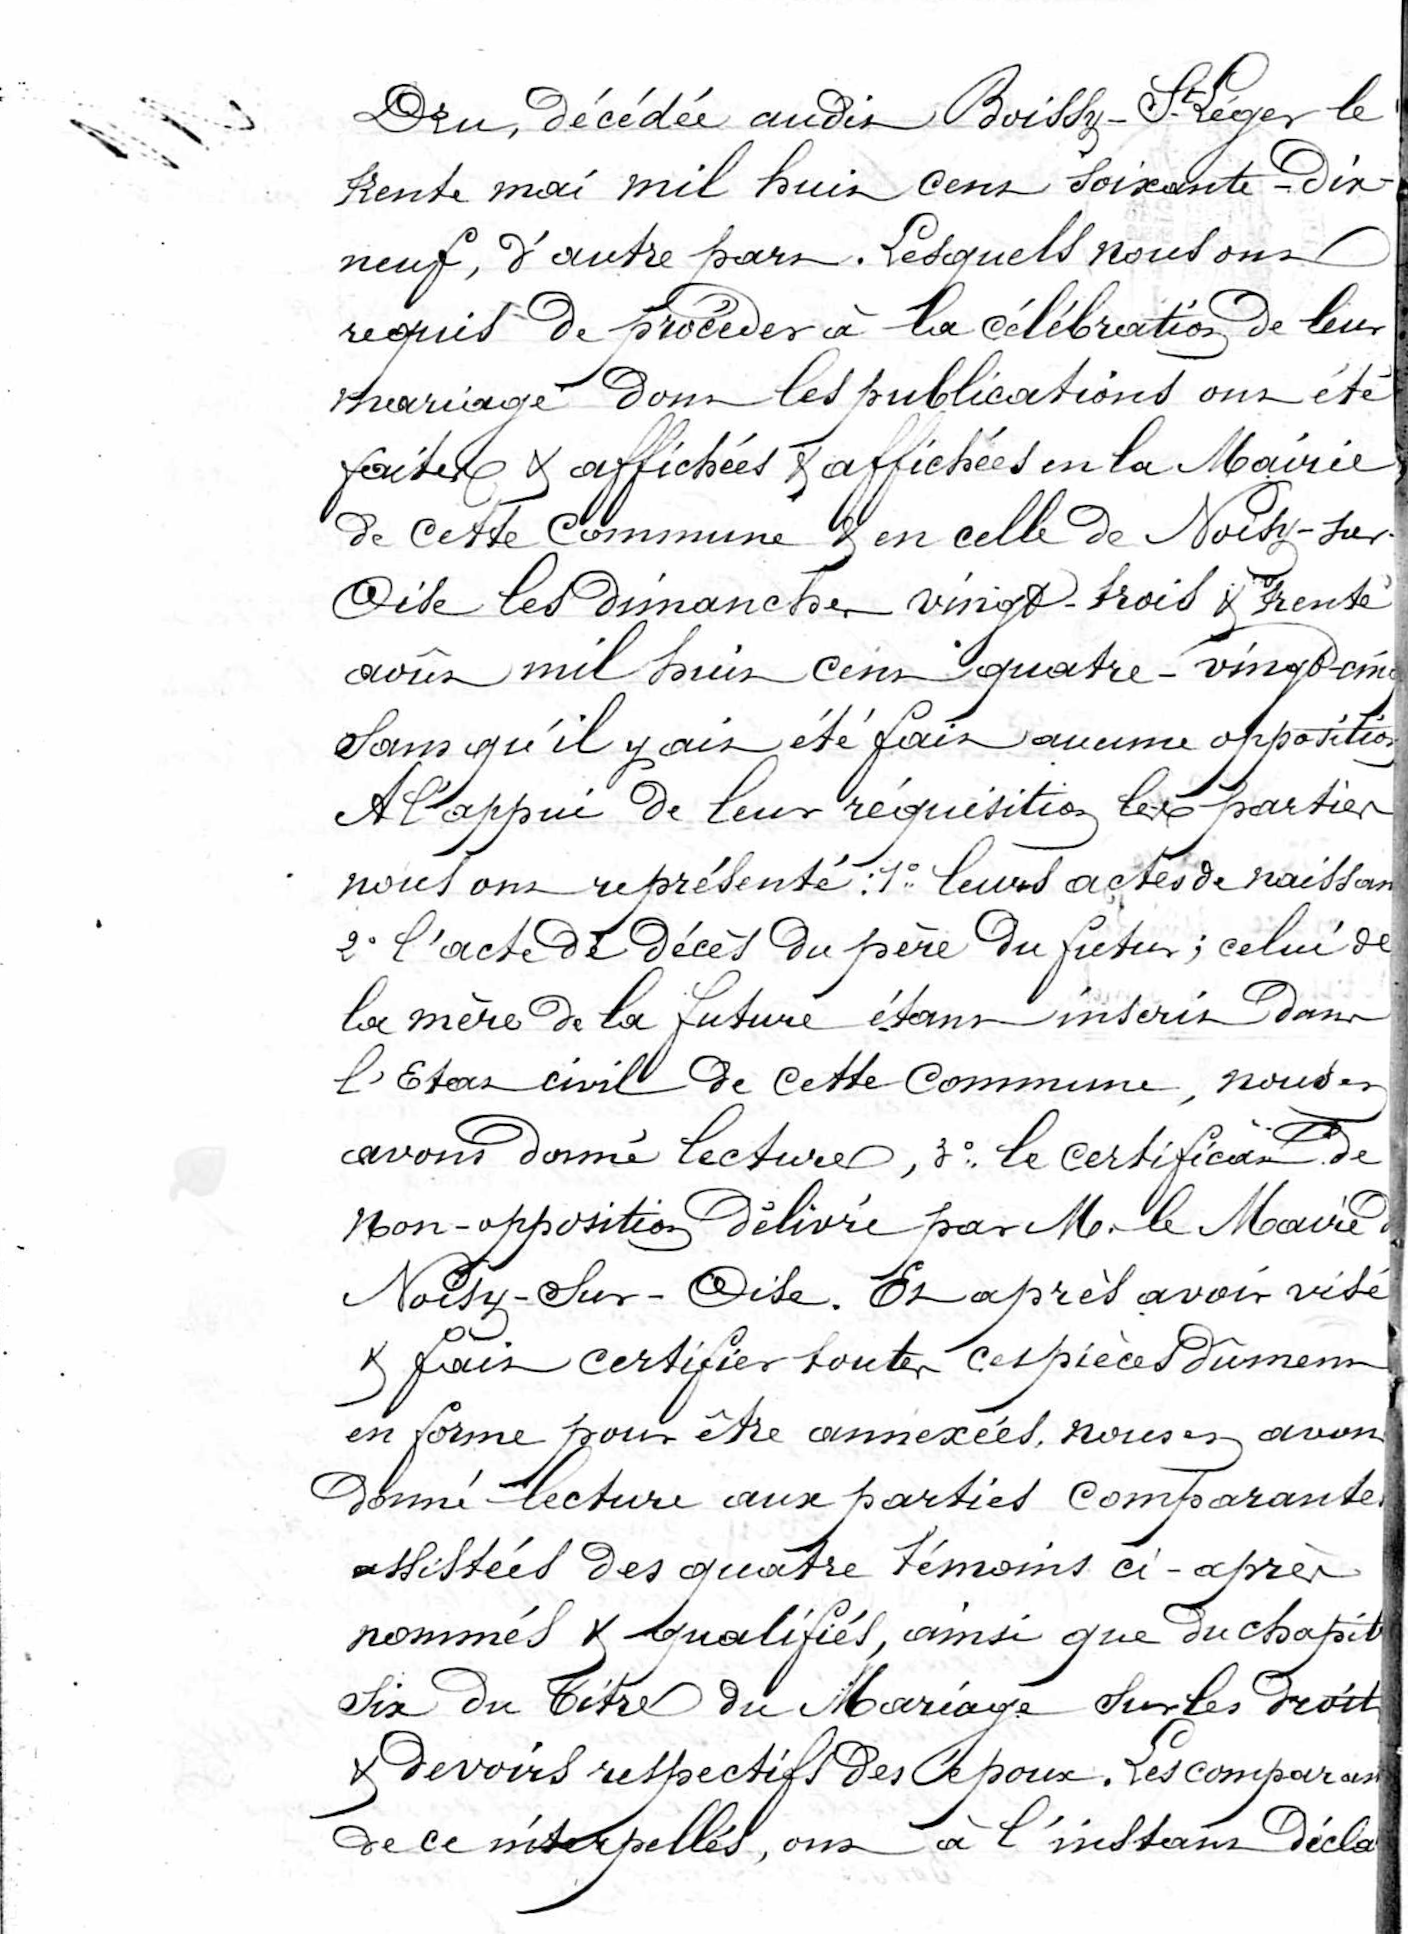 Dru, décédée audit Boissy-St-Léger le
trente mai mil huit cent soixante-dix-
neuf, d'autre part. Lesquels nous ont
requis de procéder à la célébration de leur
mariage dont les publications ont été
faites & affichées & affichées en la Mairie
de cette Commune & en celle de Noisy-sur-
Oise les dimanches vingt-trois & trente
août mil huit cent quatre-vingt-cinq
sans qu'il y ait été fait aucune opposition
A l'appui de leur réquisition les parties
nous ont représenté : 1° leurs actes de naissan
2° l'acte de décès du père du futur ; celui de
la mère de la future étant inscrit dans
l'Etat civil de cette Commune, nous en
avons donné lecture, 3° le certificat de
non-opposition délivré par M. le Maire d
Noisy-sur-Oise. Et après avoir visé
& fait certifier toutes ces pièces dûment
en forme pour être annexées, nous en avons
donné lecture aux parties comparantes
assistées des quatre témoins ci-après
nommés & qualifiés, ainsi que du chapit
six du Titre du Mariage sur les droits
& devoirs respectifs des époux. Les comparan
de ce interpellés, ont à l'instant décla